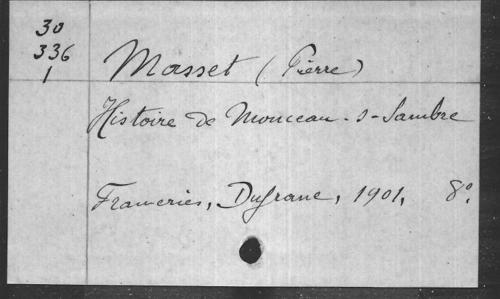 30
336
1
Masset (Pierre)
Histoire de Monceau-s-Sambre
Frameries, Dufrane, 1901, 8º.